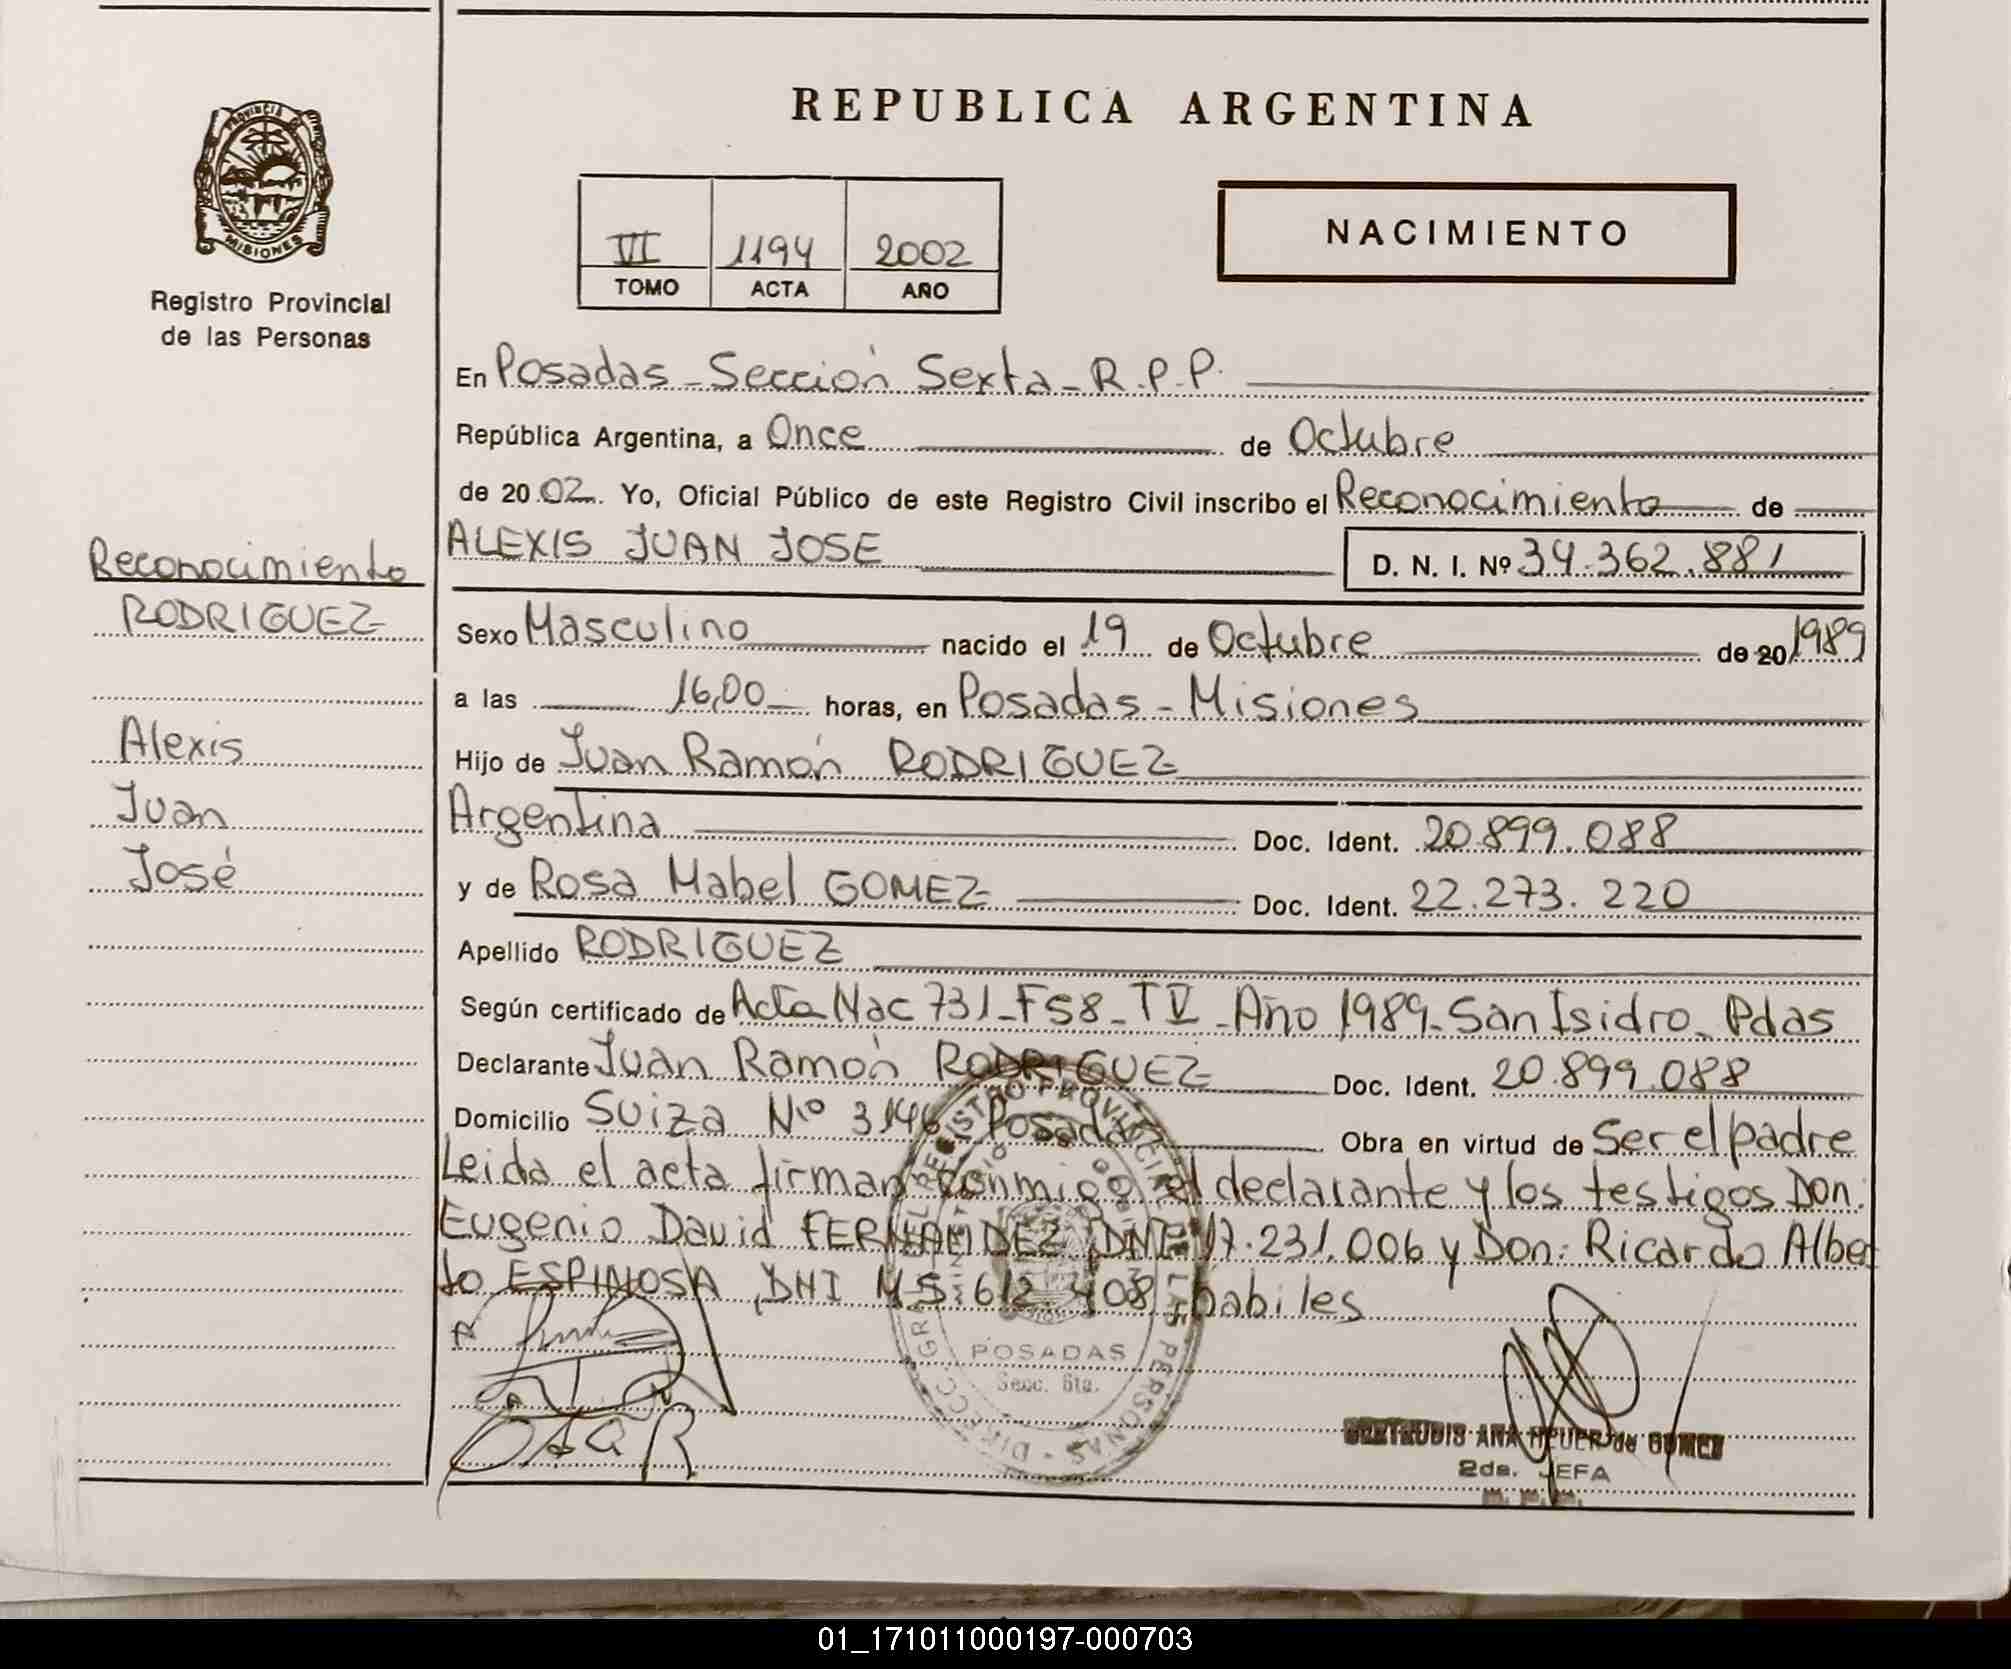 REPUBLICA ARGENTINA
PROVINCIA DE
MISIONES
Registro Provincial
de las Personas
VI 1194 2002
TOMO ACTA AÑO
NACIMIENTO
En Posadas - Sección Sexta - R.P.P.
República Argentina, a Once de Octubre
de 2002. Yo, Oficial Público de este Registro Civil inscribo el Reconocimiento de
ALEXIS JUAN JOSE D. N. I. Nº 34.362.881
Reconocimiento
RODRIGUEZ
Alexis
Juan
José
Sexo Masculino nacido el 19 de Octubre de 20 1989
a las 16,00 horas, en Posadas - Misiones
Hijo de Juan Ramón RODRIGUEZ
Argentina Doc. Ident. 20.899.088
y de Rosa Mabel GOMEZ Doc. Ident. 22.273.220
Apellido RODRIGUEZ
Según certificado de Acta Nac 731 - F58 - T V - Año 1989 - San Isidro - Pdas
Declarante Juan Ramón RODRIGUEZ Doc. Ident. 20.899.088
Domicilio Suiza Nº 3146 Posadas Obra en virtud de Ser el padre
Leida el acta firman conmigo el declarante y los testigos Don:
Eugenio David FERNANDEZ, DNI 17.231.006 y Don: Ricardo Alber
to ESPINOSA, DNI M 5.612.408 habiles
POSADAS
Secc. 6ta.
GERTRUDIS ANA HEUER de GOMEZ
2da. JEFA
R. P. P.
01_171011000197-000703